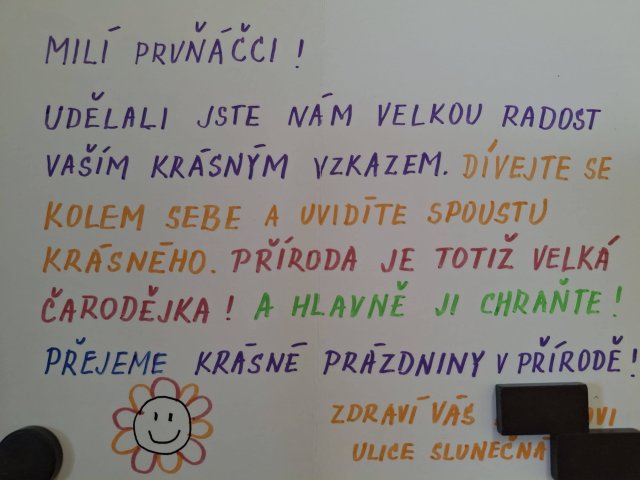 MILÍ PRVŇÁČCI !
UDĚLALI JSTE NÁM VELKOU RADOST
VAŠÍM KRÁSNÝM VZKAZEM. DÍVEJTE SE
KOLEM SEBE A UVIDÍTE SPOUSTU
KRÁSNÉHO. PŘÍRODA JE TOTIŽ VELKÁ
ČARODĚJKA ! A HLAVNĚ JI CHRAŇTE !
PŘEJEME KRÁSNÉ PRÁZDNINY V PŘÍRODĚ !
ZDRAVÍ VÁS
ULICE SLUNEČNÁ